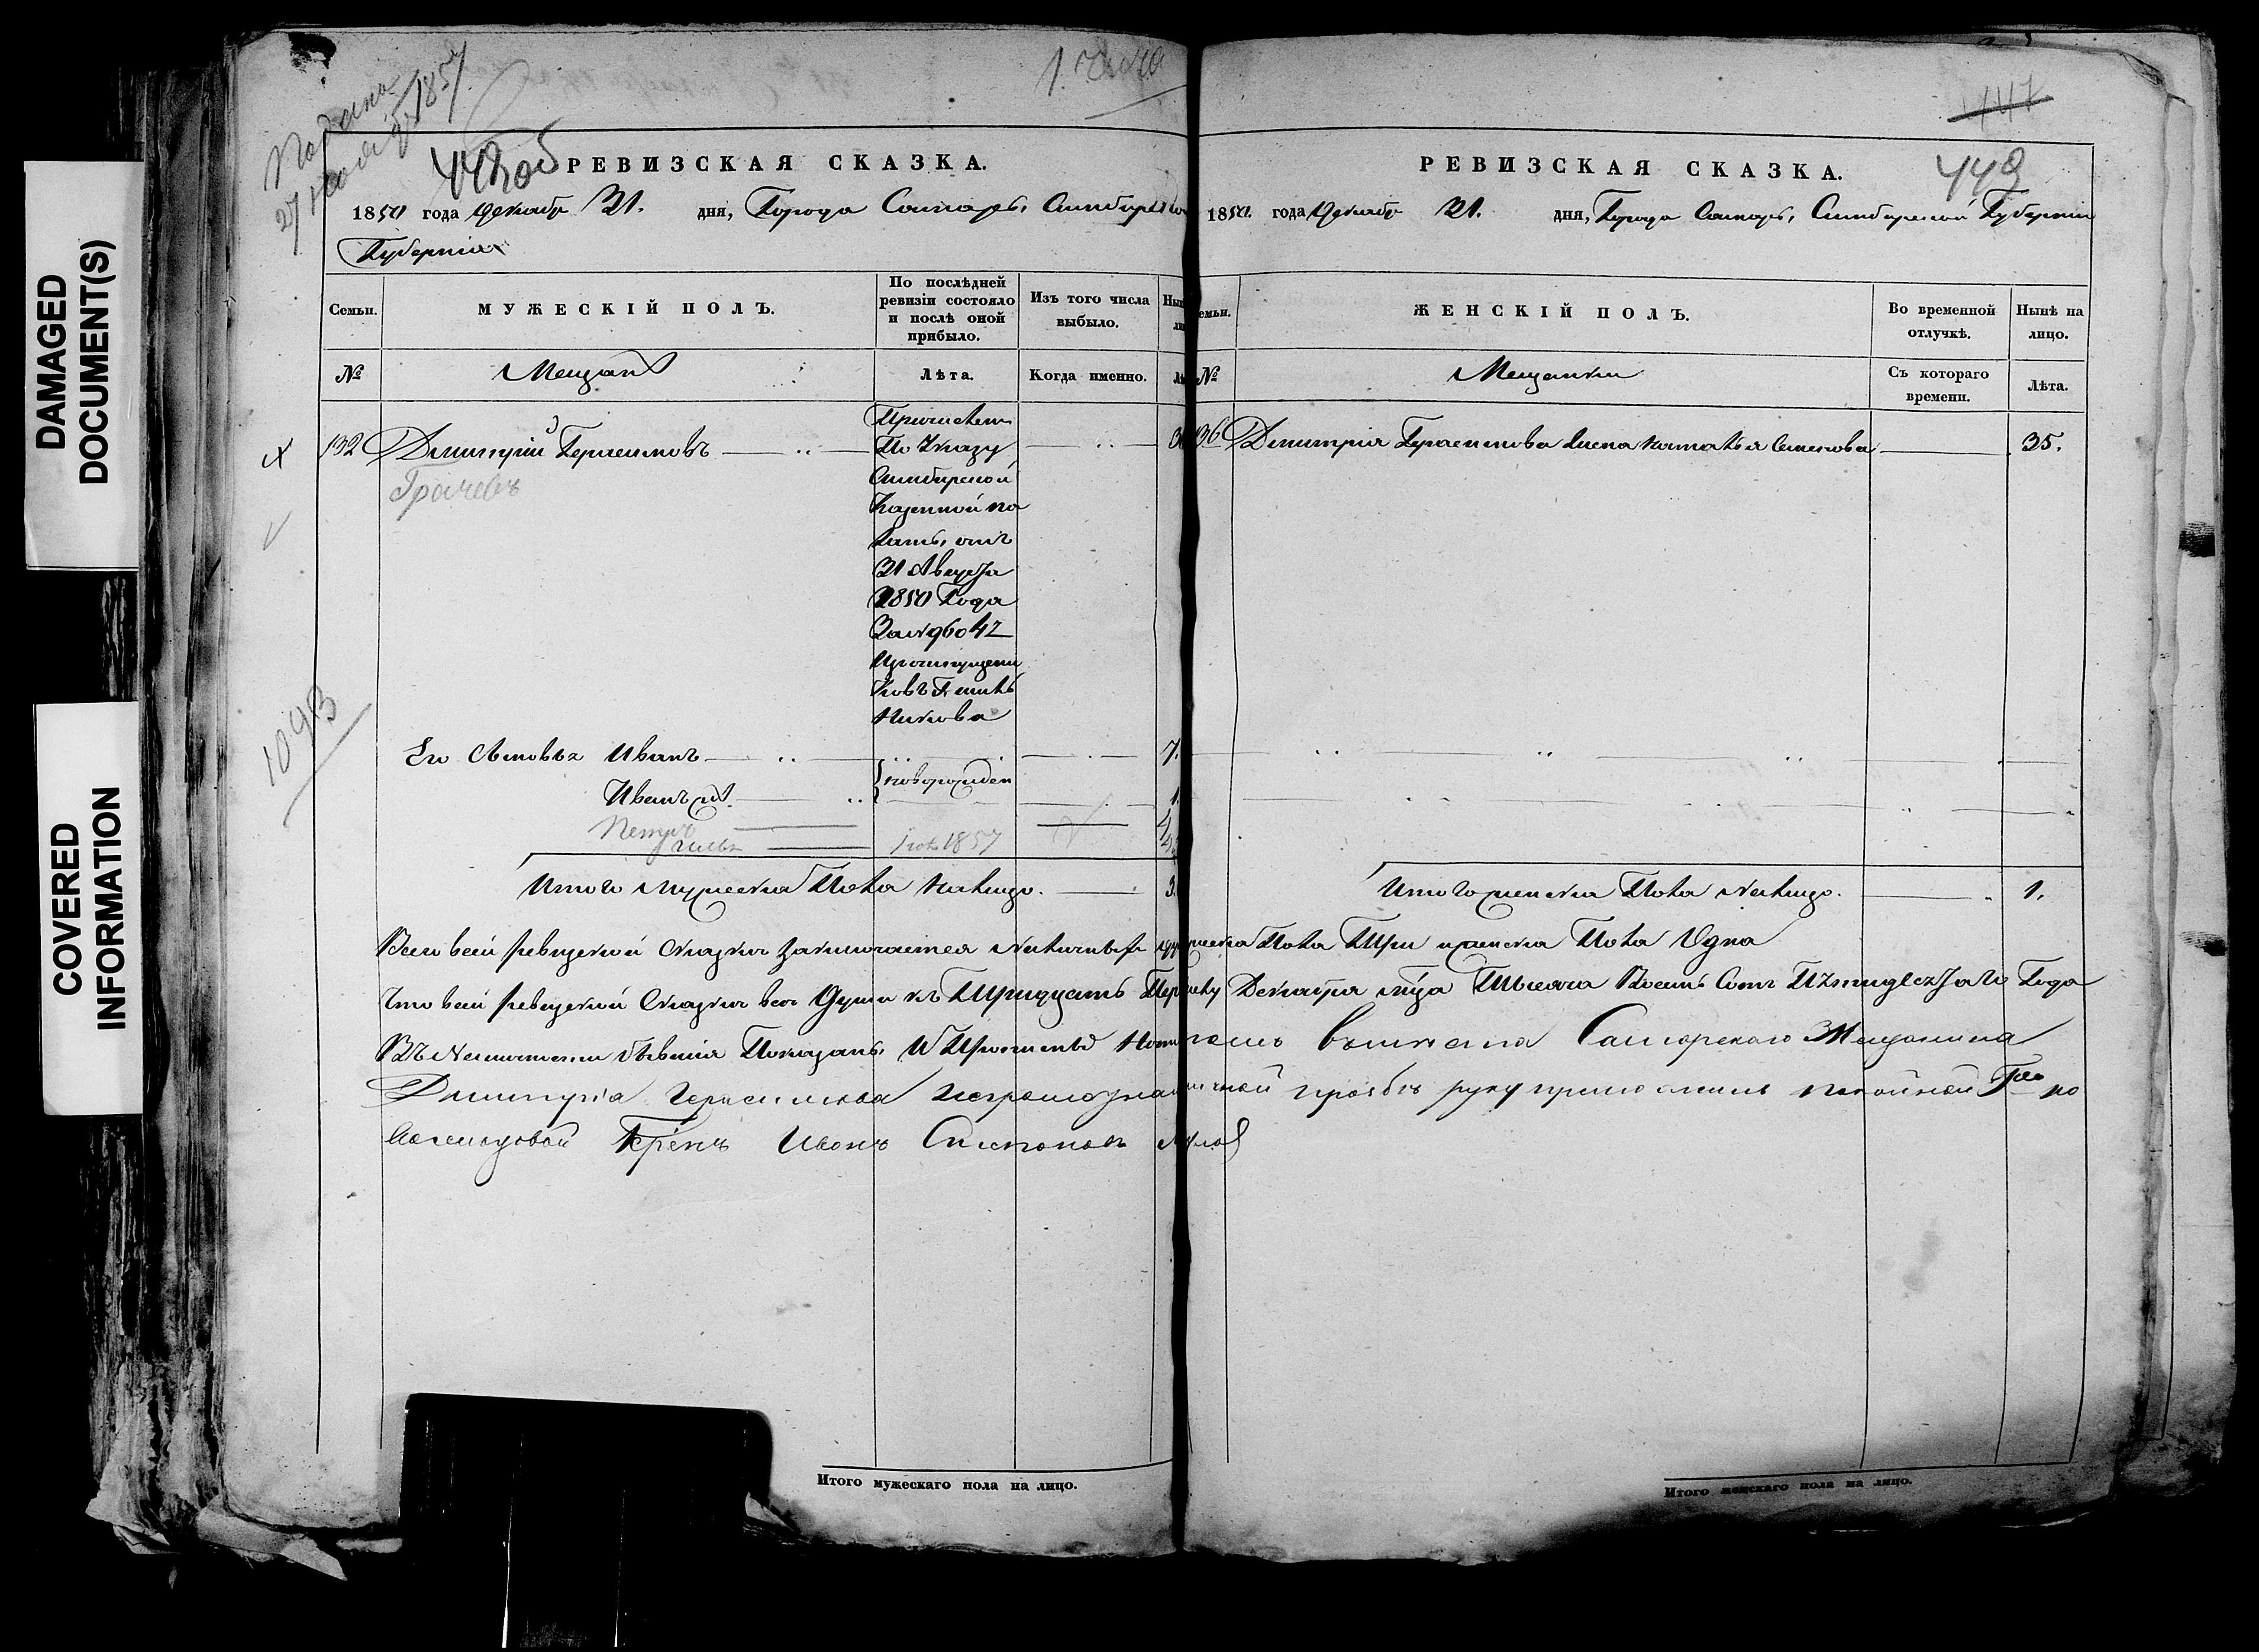 DAMAGED
DOCUMENT(S)
COVERED
INFORMATION
Подана
27 1857
1093
РЕВИЗСКАЯ СКАЗКА.
1850 года Декабр 31. дня, Города Самары, Симбирско
Губерніи
Семьи.
МУЖЕСКІЙ ПОЛЪ.
По послѣдней
ревизіи состояло
и послѣ оной
прибыло.
Изъ того числа
выбыло.
№
Мещан
Лѣта.
Когда именно.
132 Дмитрій Герасимовъ
Грачевъ
Причислен
По Указу
Симбирской
Казенной па
латы, отъ
31 Августа
1850 Года
За № 96042
Изъ отпущени
ковъ
никова
Его Сыновья Иванъ 7.
Новорожден
Иванъ 1.
Петръ
1857
Итого мужеска Пола налицо. 3.
РЕВИЗСКАЯ СКАЗКА.
447
449
1850. года Декабр 31. дня, Города Самары, Симбирской Губерніи
емьи.
ЖЕНСКІЙ ПОЛЪ.
Во временной
отлучкѣ.
Нынѣ на
лицо.
№
Мещанки
Съ котораго
времени.
Лѣта.
Дмитрія Герасимова жена Наталья Семенова 35.
Итого женска Пола налицо. 1.
Всего всей ревизской сказки заключается налицо мужеска Пола Три женска Пола Одна
Что всей ревизской Сказки все Души къ Тридцать Первому Декабря Тысяча Восемь Сотъ Пятидесятаго Года
Въ бывшія Показаны И Самарскаго Мещанина
Дмитрія Герасимова неграмотнаго личной прозбѣ руку приложилъ
Иванъ Степановъ
Итого мужескаго пола на лицо.
Итого женскаго пола на лицо.